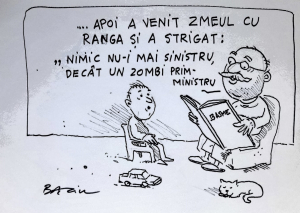 ... APOI A VENIT ZMEUL CU
RANGA ȘI A STRIGAT:
„NIMIC NU-I MAI SINISTRU,
DECÂT UN ZOMBI PRIM-
MINISTRU"
BASME